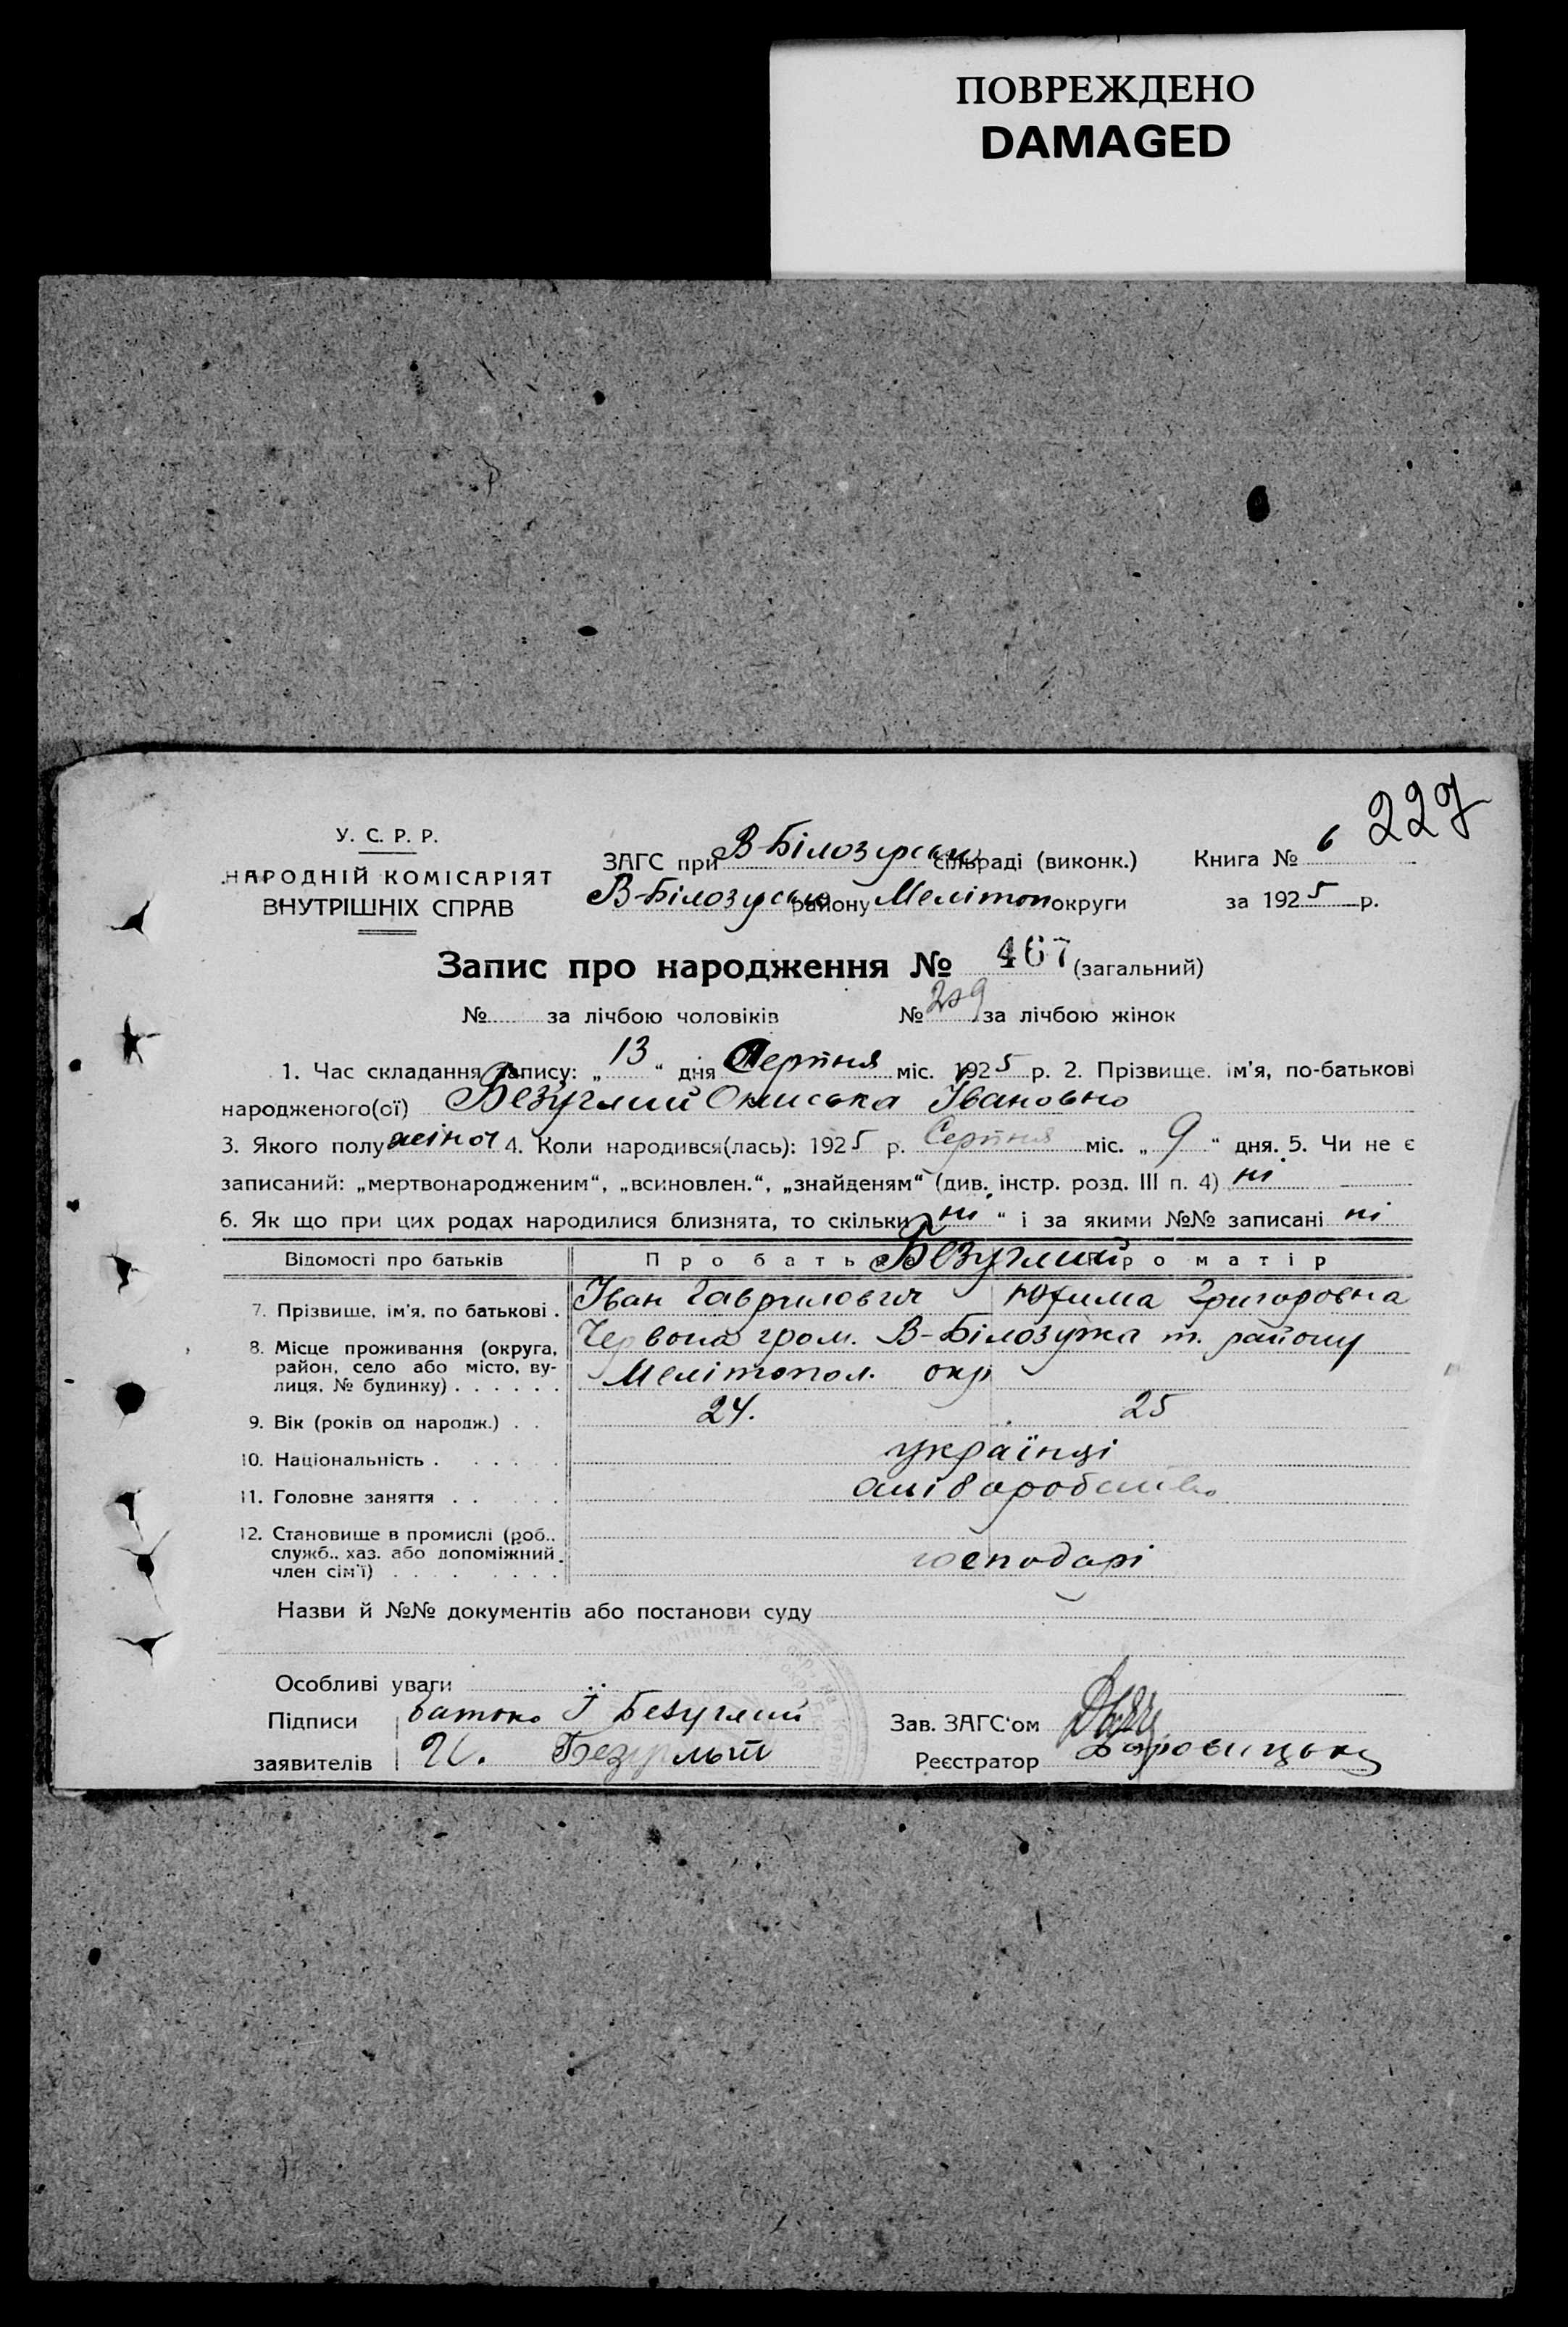 ПОВРЕЖДЕНО
DAMAGED
227
У. С. Р. Р.
НАРОДНІЙ КОМІСАРІЯТ
ВНУТРІШНІХ СПРАВ
ЗАГС при В-Білозурській сільраді (виконк.) Книга № 6
В-Білозурсько району Мелітоп округи за 1925 р.
Запис про народження № 467 (загальний)
№ за лічбою чоловіків № за лічбою жінок
1. Час складання запису: „13“ дня Серпня міс. 1925 р. 2. Прізвище, ім'я, по-батькові
народженого(ої) Безуглий Ониська Івановно
3. Якого полу жіноч 4. Коли народився(лась): 1925 р. Серпня міс. „9“ дня. 5. Чи не є
записаний: „мертвонародженим“, „всиновлен.“, „знайденям“ (див. інстр. розд. III п. 4) ні
6. Як що при цих родах народилися близнята, то скільки „ні“ і за якими №№ записані ні
Відомості про батьків Про батька Про матір
Безуглий
7. Прізвище, ім'я, по батькові . Іван Гаврилович Юхима Григоровна
8. Місце проживання (округа, район, село або місто, вулиця, № будинку) . . . . . . Червона гром. В-Білозурка т. району
Мелітопол. окр
9. Вік (років од народж.) . . 24. 25
10. Національність . . . . . . українці
11. Головне заняття . . . . . хліборобство
12. Становище в промислі (роб.,
служб., хаз. або допоміжний
член сім'ї) . . . . . . . господарі
Назви й №№ документів або постанови суду
Особливі уваги
Підписи батько І Безуглий Зав. ЗАГС'ом
заявителів И. Безуглый Реєстратор